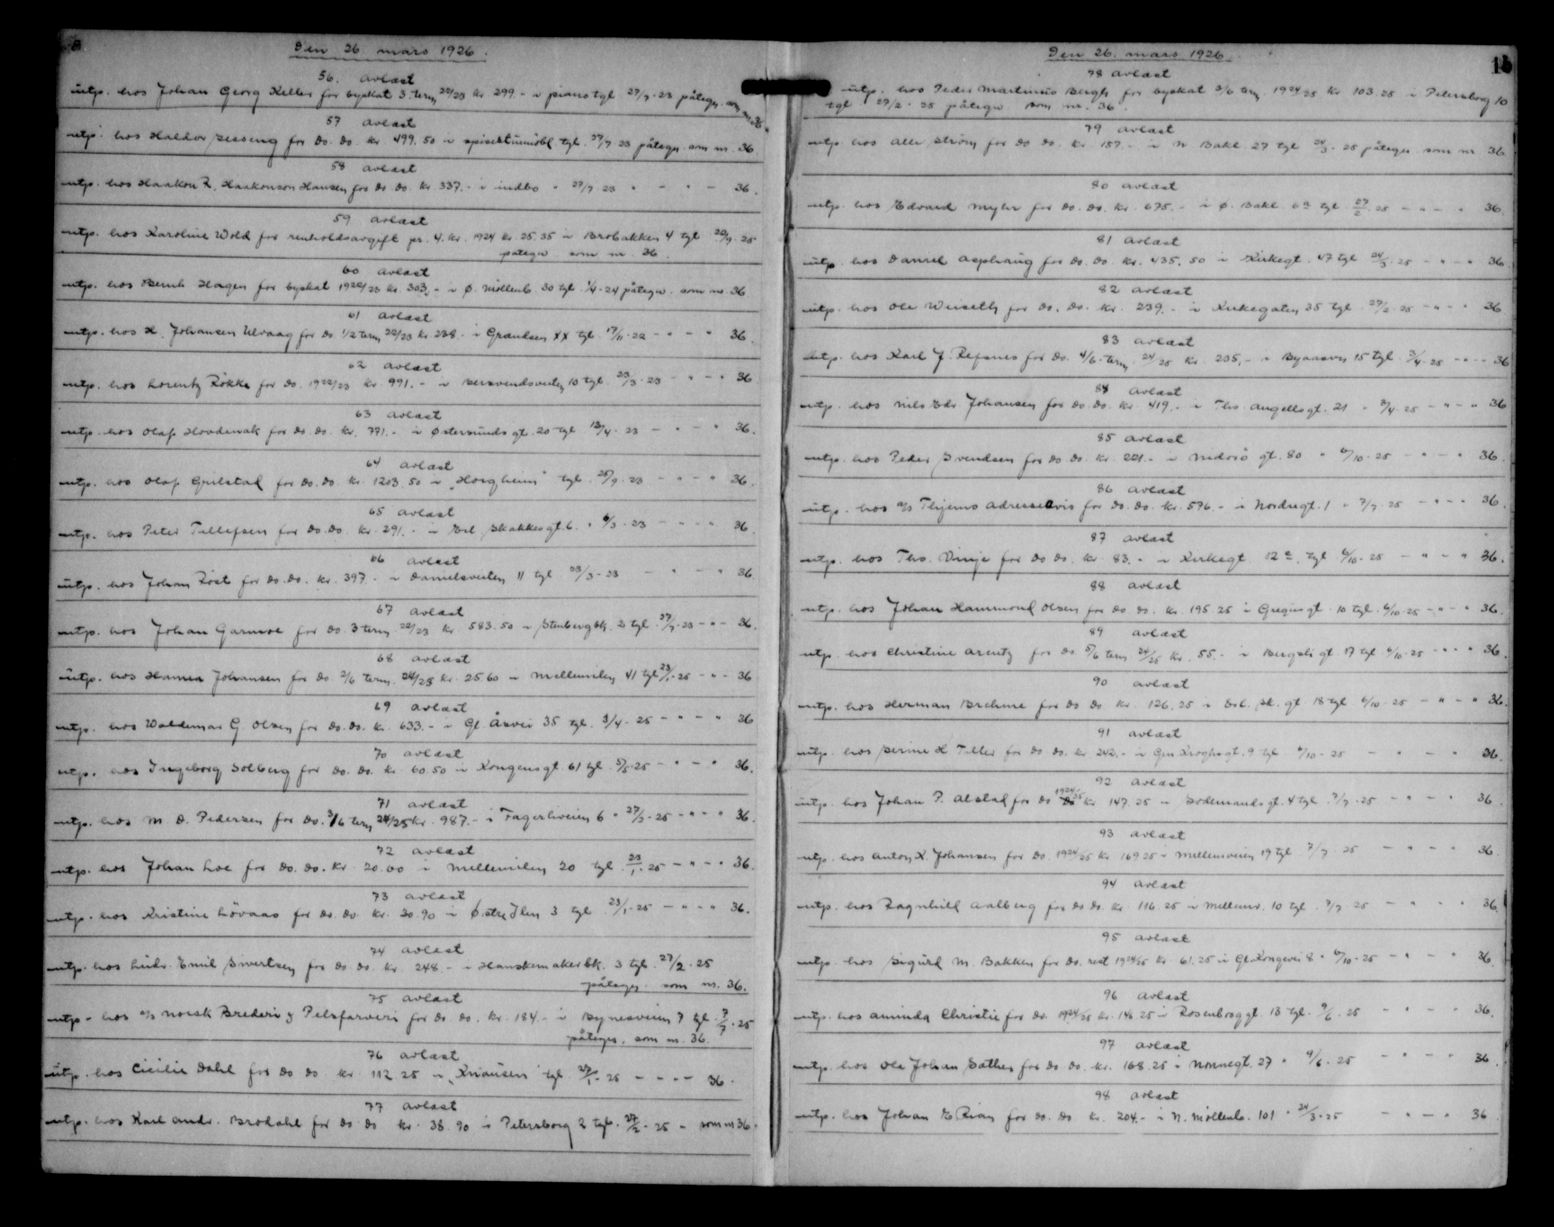 Den 26. mars 1926.
56. avlæst
utp. hos Johan Georg Keller for byskat 3 term 22/23 kr 299.- i piano tgl 27/7-23 påtegn. som nr. 36.
57 avlæst
utp. hos Haldor Sesseng for do. do. kr. 499.50 i tgl. 27/7 23 påtegn. som nr. 36.
58 avlæst
utp. hos Haakon R. Haakonson Hansen for do do. kr. 337.- i indbo " 27/7 23 " - " - 36.
59 avlæst
utp. hos Karoline Wold for renholdsavgift pr. 4. kv. 1924 kr. 25.35 i Brobakken 4 tgl 20/9-25
påtegn. som nr. 36.
60 avlæst
utp. hos Bernh Hagen for byskat 1922/23 kr. 303.- i Ø. Møllenb. 30 tgl. 1/4-24 påtegn. som nr 36
61 avlæst
utp. hos H. Johansen Ulvaag for do 1/2 term 22/23 kr 238.- i Grandsen XX tgl. 17/11-22 - " - " 36.
62 avlæst
utp. hos Lorentz Røkke for do. 1922/23 kr. 991.- i Bersvendsveiten 10 tgl. 23/3-23 " - " 36
63 avlæst
utp. hos Olaf Hovdenak for do. do. kr. 791.- i Østersunds gt. 20 tgl 13/4-23 - " - " 36.
64 avlæst
utp. hos Olaf Gulstad for do. do. kr. 1203.50 i "Horgheim" tgl. 25/9-23 - " - " 36.
65 avlæst
utp. hos Peter Tellefsen for do. do. kr. 291.- i Erl. Skakkes gt. 6. " 6/3-23 - " - " 36
66 avlæst
utp. hos Johan Röst for do. do. kr. 397.- i Danielsveiten 11 tgl. 23/3-23 - " - " 36.
67 avlæst
utp. hos Johan Garmoe for do. 3 term 22/23 kr. 583.50 i Stenberg bk. 2 tgl. 27/7-23 - " - 36.
68 avlæst
utp. hos Hanna Johansen for do. 2/6 term. 24/25 kr. 25.60 i Mellemilen 41 tgl 23/1-25 - " - 36
69 avlæst
utp. hos Waldemar G. Olsen for do. do. kr. 633.- i Gl. Åsvei 35 tgl. 3/4-25 - " - " 36
70 avlæst
utp. hos Ingeborg Solberg for do. do. kr. 60.50 i Kongens gt 61 tgl. 5/5-25 - " - " 36.
71 avlæst
utp. hos M. O. Pedersen for do. 3/6 term 24/25 kr. 987.- i Fagerliveien 6 " 27/3-25 - " - " 36.
72 avlæst
utp. hos Johan Loe for do. do. kr. 20.00 i Mellemilen 20 tgl. 23/1-25 - " - " 36.
73 avlæst
utp. hos Kristine Lövaas for do. do. kr. 30.90 i Ø.stre Ilen 3 tgl. 23/1-25 - " - " 36.
74 avlæst
utp. hos Ludv. Emil Sivertsen for do do. kr. 248.- i Hanskemakerbk. 3 tgl. 27/2-25
påtegn. som nr. 36.
75 avlæst
utp. hos a/s Norsk Brederi & Pelsfarveri for do do. kr. 184.- i Bynesveien 7 tgl. 7/7-25
påtegn. som nr. 36.
76 avlæst
utp. hos Cicilie Dahl for do do kr 112 25 i "Knausen" tgl. 27/1-25 - - " - 36.
77 avlæst
utp. hos Karl Andr. Brodahl for do do kr. 38.90 i Petersborg 2 tgl. 27/2-25 - som nr 36.
Den 26. mars 1926
78 avlæst
utp. hos Peder Martinius Bergh for byskat 3/6 term 1924/25 kr 103.25 i Petersborg 10
tgl 27/2-25 påtegn som nr. 36.
79 avlæst
utp. hos Alette Ström for do do. kr. 157.- i N. Bakl. 27 tgl. 24/3-25 påtegn. som nr 36
80 avlæst
utp. hos Edvard Myhr for do. do. kr. 675.- i Ø. Bakl. tgl. 27/2-25 - " - " 36.
81 avlæst
utp. hos Daniel Asphaug for do. do. kr. 435.50 i Kirkegt. 47 tgl. 24/3-25 - " - " 36.
82 avlæst
utp. hos Ole Weiseth for do. do. kr. 239.- i Kirkegaten 35 tgl. 27/2-25 - " - " 36.
83 avlæst
utp. hos Karl J. Refsnes for do. 4/6 term 24/25 kr. 235.- i Byaasvn 15 tgl. 3/4-25 - " - " 36
84 avlæst
utp. hos Nils Edv. Johansen for do do. kr. 419.- i Ths. Angells gt. 21 " 3/4-25 - " - " 36
85 avlæst
utp. hos Peder Svendsen for do do. kr. 221.- i Nidarö gt. 80 " 6/10-25 - " - " 36.
86 avlæst
utp. hos a/s Thjems Adresseavis for do. do. kr. 596.- i Nordregt. 1 " 7/7-25 - " - " 36.
87 avlæst
utp. hos Ths. Vinje for do do. kr. 83.- i Kirkegt. 12 a. tgl 6/10-25 - " - " 36.
88 avlæst
utp. hos Johan Hammond Olsen for do do. kr. 195 25 i Gregus gt. 10 tgl. 6/10-25 - " - " 36.
89 avlæst
utp. hos Christine Arentz for do. 5/6 term 24/25 kr. 55.- i Bergsli gt 17 tgl 6/10-25 - " - " 36.
90 avlæst
utp. hos Herman Brehme for do do kr. 126.25 i Erl. Sk. gt 18 tgl 6/10-25 - " - " 36.
91 avlæst
utp. hos Serine H Tiller for do do. kr 242.- i Gen Kroghs gt. 9 tgl 6/10-25 - " - " 36.
92 avlæst
utp. hos Johan P. Alstad for do 1924/25 kr 147.25 i Sodemands gt. 4 tgl. 7/7-25 - " - " 36.
93 avlæst
utp. hos Anton K. Johansen for do. 1924/25 kr 169 25 i Mellemveien 19 tgl. 7/7-25 - " - " 36.
94 avlæst
utp. hos Ragnhild Aalberg for do do. kr. 116.25 i Mellemv. 10 tgl. 7/7-25 - " - " 36.
95 avlæst
utp. hos Sigurd M. Bakken for do. rest 1924/25 kr. 61.25 i Gl. Kongevei 8 " 6/10-25 - " - " 36.
96 avlæst
utp. hos Aminda Christie for do. 1924/25 kr. 146.25 i Rosenborg gt. 13 tgl. 9/6-25 - " - " 36.
97 avlæst
utp. hos Ole Johan Sæther for do do. kr. 168.25 i Nonnegt. 27 " 9/6-25 - " - " 36.
98 avlæst
utp. hos Johan E Rian for do. do kr. 204.- i N. Møllenb. 101 " 24/3-25 - " - " 36.